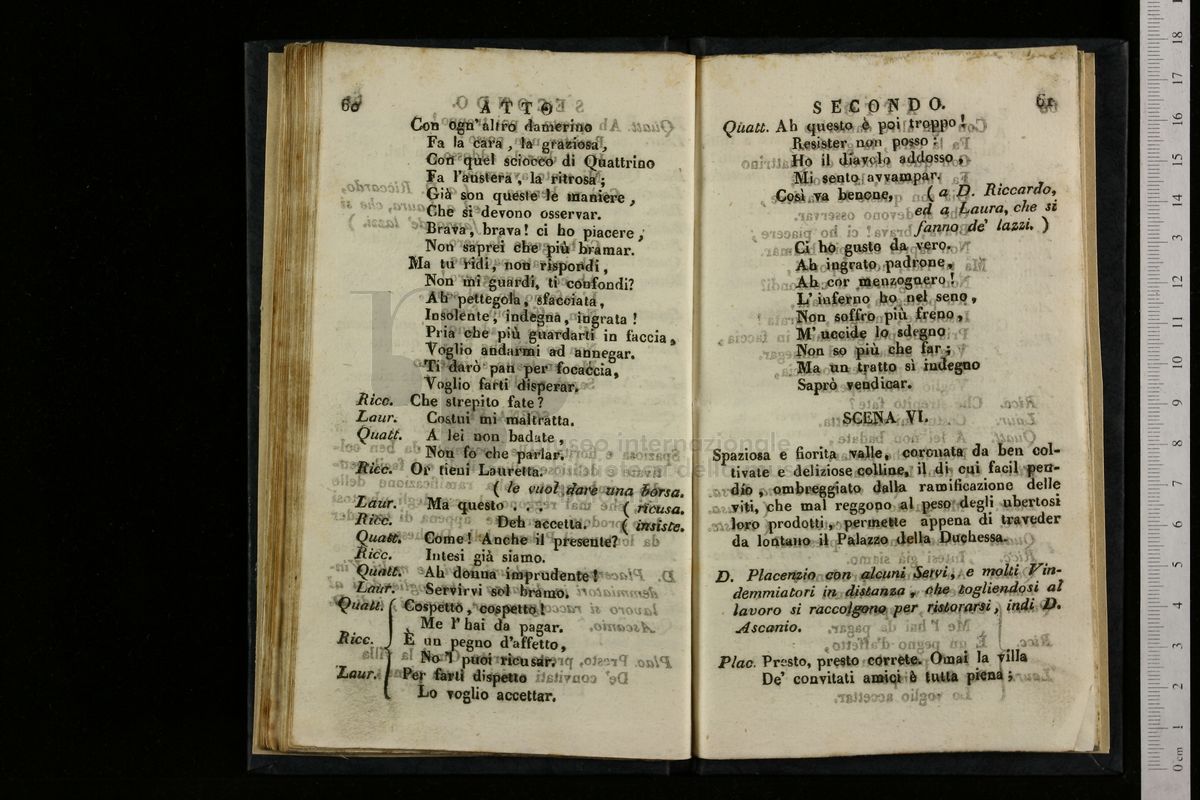 60 ATTO
Con ogn' altro damerino
Fa la cara, la graziosa,
Con quel sciocco di Quattrino
Fa l'austera, la ritrosa;
Già son queste le maniere,
Che si devono osservar.
Brava, brava! ci ho piacere,
Non saprei che più bramar.
Ma tu ridi, non rispondi,
Non mi guardi, ti confondi?
Ah pettegola, sfacciata,
Insolente, indegna, ingrata!
Pria che più guardarti in faccia,
Voglio andarmi ad annegar.
Ti darò pan per focaccia,
Voglio farti disperar.
Ricc. Che strepito fate?
Laur. Costui mi maltratta.
Quatt. A lei non badate,
Non fo che parlar.
Ricc. Or tieni Lauretta.
( le vuol dare una borsa.
Laur. Ma questo . . . ( ricusa.
Ricc. Deh accetta. ( insiste.
Quatt. Come! Anche il presente?
Ricc. Intesi già siamo.
Quatt. Ah donna imprudente!
Laur. Servirvi sol bramo.
Quatt. Cospetto, cospetto!
Me l' hai da pagar.
Ricc. È un pegno d'affetto,
No 'l puoi ricusar.
Laur. Per farti dispetto
Lo voglio accettar.
SECONDO. 61
Quatt. Ah questo è poi troppo!
Resister non posso;
Ho il diavolo addosso,
Mi sento avvampar.
Così va benone, ( a D. Riccardo,
ed a Laura, che si
fanno de' lazzi. )
Ci ho gusto da vero.
Ah ingrato padrone,
Ah cor menzognero!
L' inferno ho nel seno,
Non soffro più freno,
M' uccide lo sdegno
Non so più che far;
Ma un tratto sì indegno
Saprò vendicar.
SCENA VI.
Spaziosa e fiorita valle, coronata da ben col-
tivate e deliziose colline, il di cui facil pen-
dìo, ombreggiato dalla ramificazione delle
viti, che mal reggono al peso degli ubertosi
loro prodotti, permette appena di traveder
da lontano il Palazzo della Duchessa.
D. Placenzio con alcuni Servi, e molti Vin-
demmiatori in distanza, che togliendosi al
lavoro si raccolgono per ristorarsi, indi D.
Ascanio.
Plac. Presto, presto correte. Omai la villa
De' convitati amici è tutta piena;